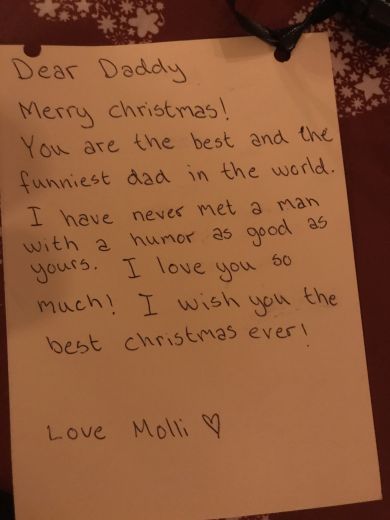 Dear Daddy
Merry christmas!
You are the best and the
funniest dad in the world.
I have never met a man
with a humor as good as
yours. I love you so
much! I wish you the
best christmas ever!
Love Molli ♡